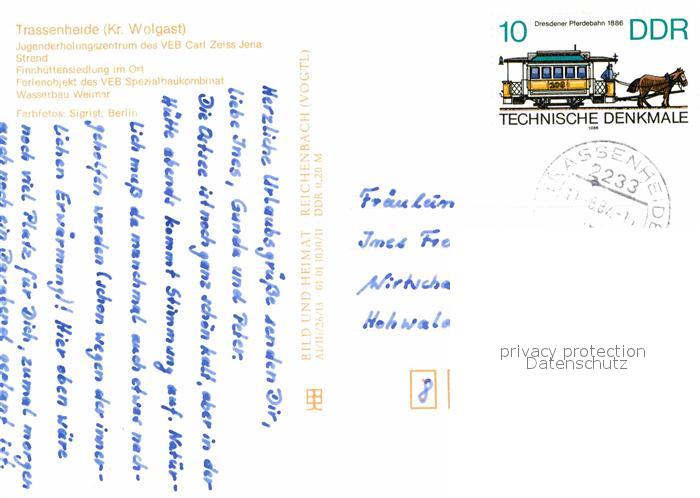 Trassenheide (Kr. Wolgast)
Jugenderholungszentrum des VEB Carl Zeiss Jena
Strand
Finnhüttensiedlung im Ort
Ferienobjekt des VEB Spezialbaukombinat
Wasserbau Weimar
Farbfotos: Sigrist, Berlin
Herzliche Urlaubsgrüße senden Dir,
liebe Ines, Gunda und Peter.
Die Ostsee ist noch ganz schön kalt, aber in der
Hütte abends kommt Stimmung auf. Natür-
lich muß da manchmal auch etwas nach-
geholfen werden (schon wegen der inner-
lichen Erwärmung)! Hier oben wäre
noch viel Platz für Dich, zumal morgen
auch noch ein geplant ist.
BILD UND HEIMAT REICHENBACH (VOGTL)
A1/III/26/13 · G1 01 1030/11 DDR 0,20 M
10 Dresdener Pferdebahn 1886 DDR
209
TECHNISCHE DENKMALE
1986
TRASSENHEIDE
2233
Fräulein
Ines Fre
Wirtscha
Hohwald
8
privacy protection
Datenschutz